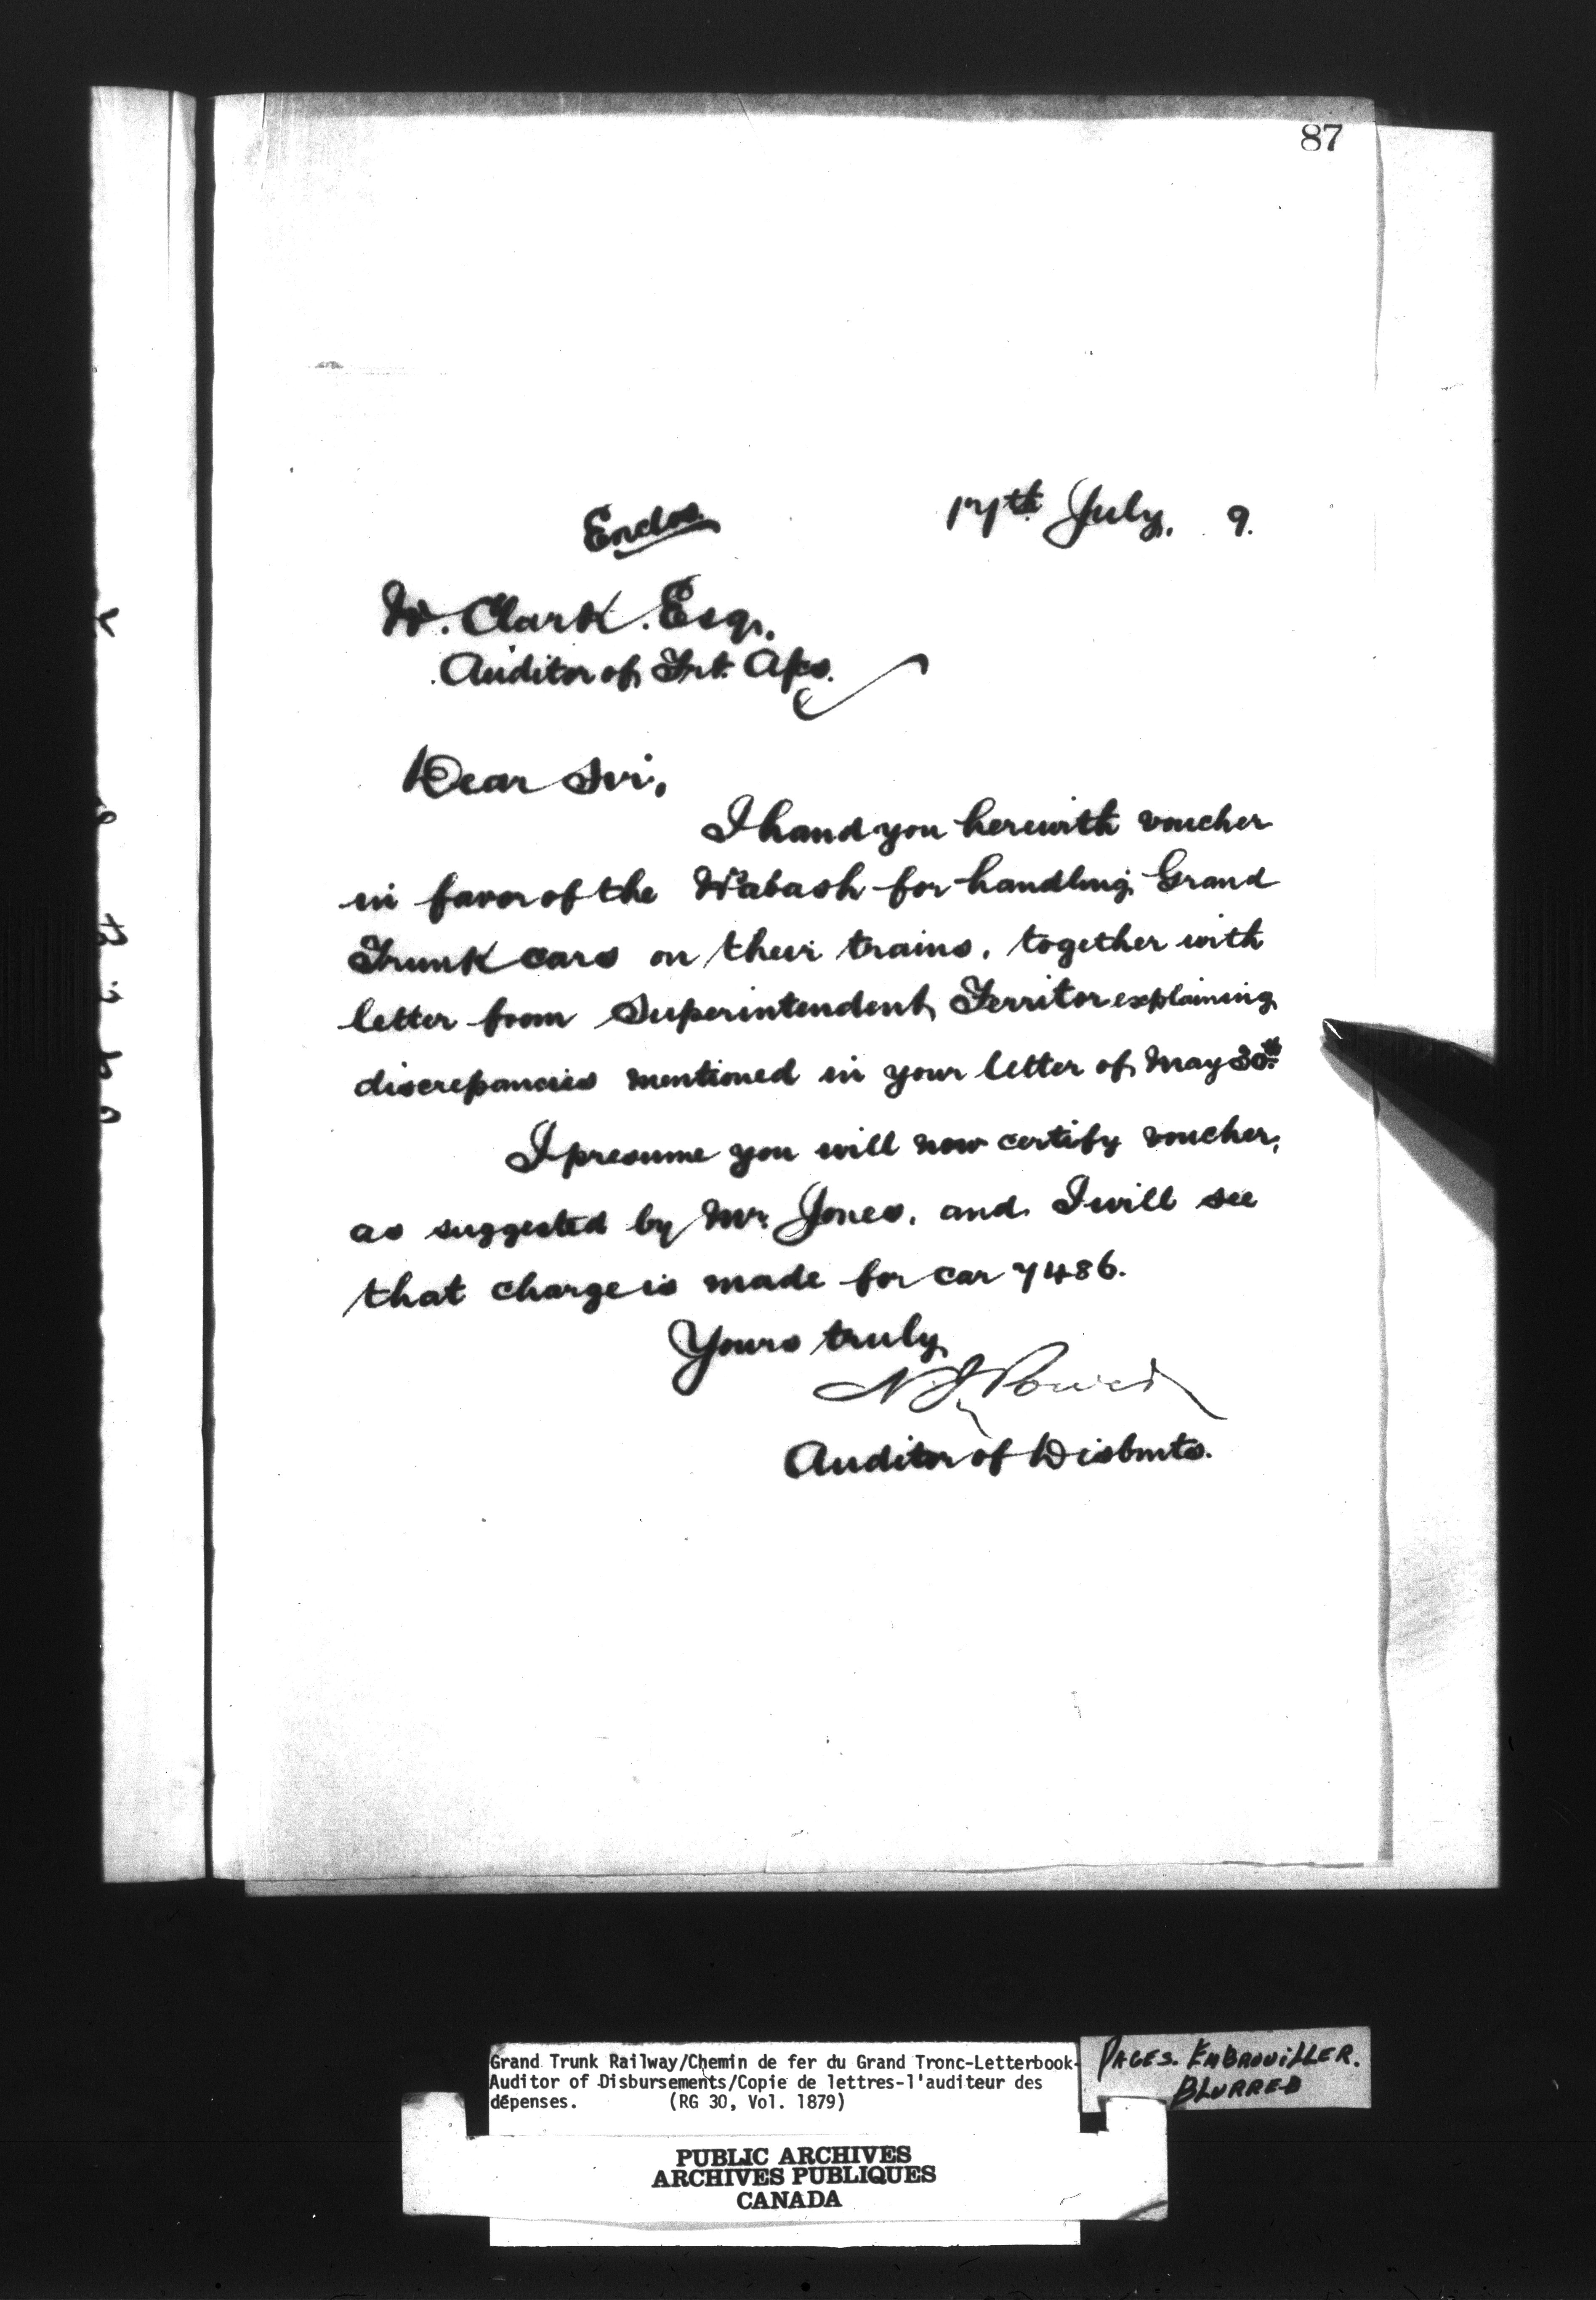 87
Enclos.
17th July, 9.
W. Clark. Esq.
Auditor of Frt. A/cs.
Dear Sir,
I hand you herewith voucher
in favor of the Wabash for handling Grand
Trunk cars on their trains, together with
letter from Superintendent Ferritor explaining
discrepancies mentioned in your letter of May 30th
I presume you will now certify voucher,
as suggested by Mr. Jones, and I will see
that charge is made for car 7486.
Yours truly
N J Power
Auditor of Disbmts.
Grand Trunk Railway/Chemin de fer du Grand Tronc-Letterbook-
Auditor of Disbursements/Copie de lettres-l'auditeur des
dépenses. (RG 30, Vol. 1879)
PAGES. EMBROUILLER.
BLURRED
PUBLIC ARCHIVES
ARCHIVES PUBLIQUES
CANADA